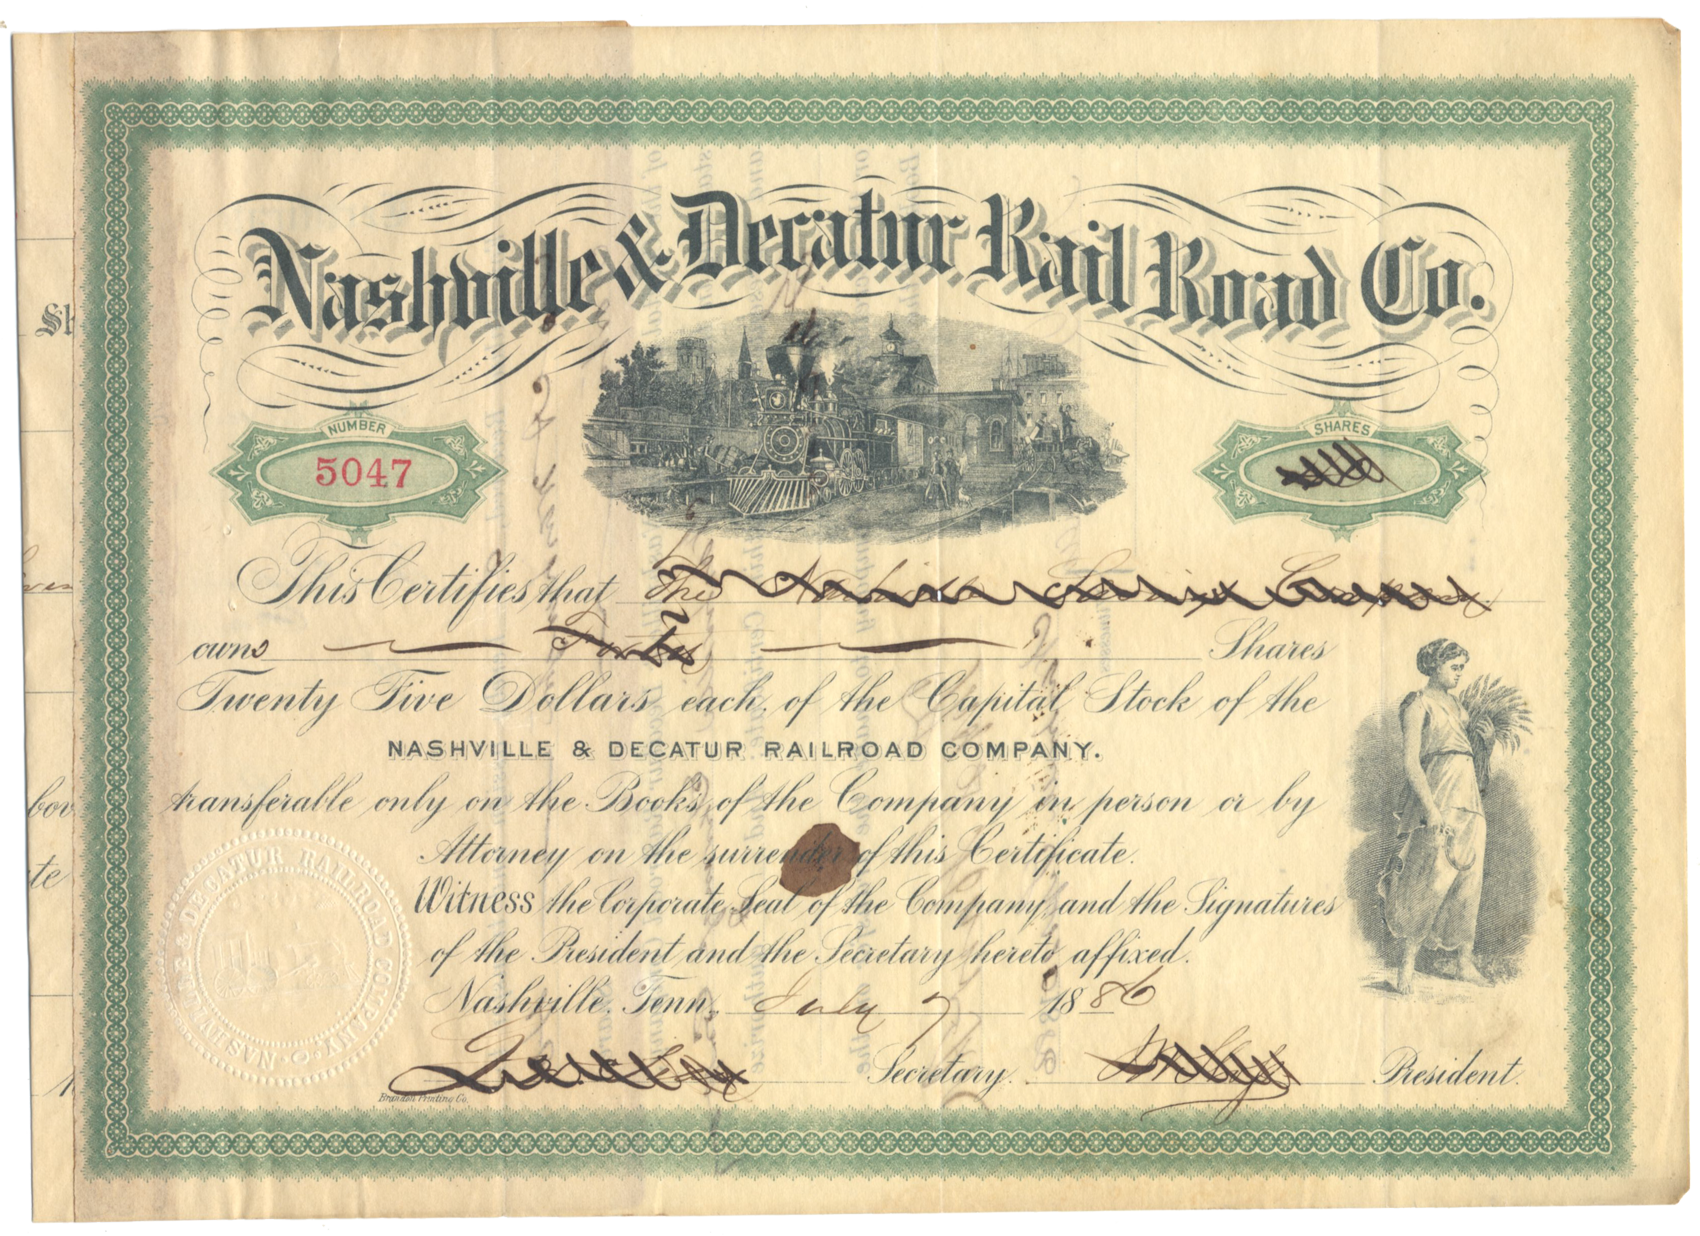 Nashville & Decatur Rail Road Co.
NUMBER
5047
SHARES
This Certifies that The Nashville Savings Company
owns Forty Shares
Twenty Five Dollars each of the Capital Stock of the
NASHVILLE & DECATUR RAILROAD COMPANY.
transferable only on the Books of the Company in person or by
Attorney on the surrender of this Certificate.
Witness the Corporate Seal of the Company and the Signatures
of the President and the Secretary hereto affixed.
Nashville, Tenn. July 7 1886
Secretary. President.
Brandon Printing Co.
NASHVILLE & DECATUR RAILROAD COMPANY